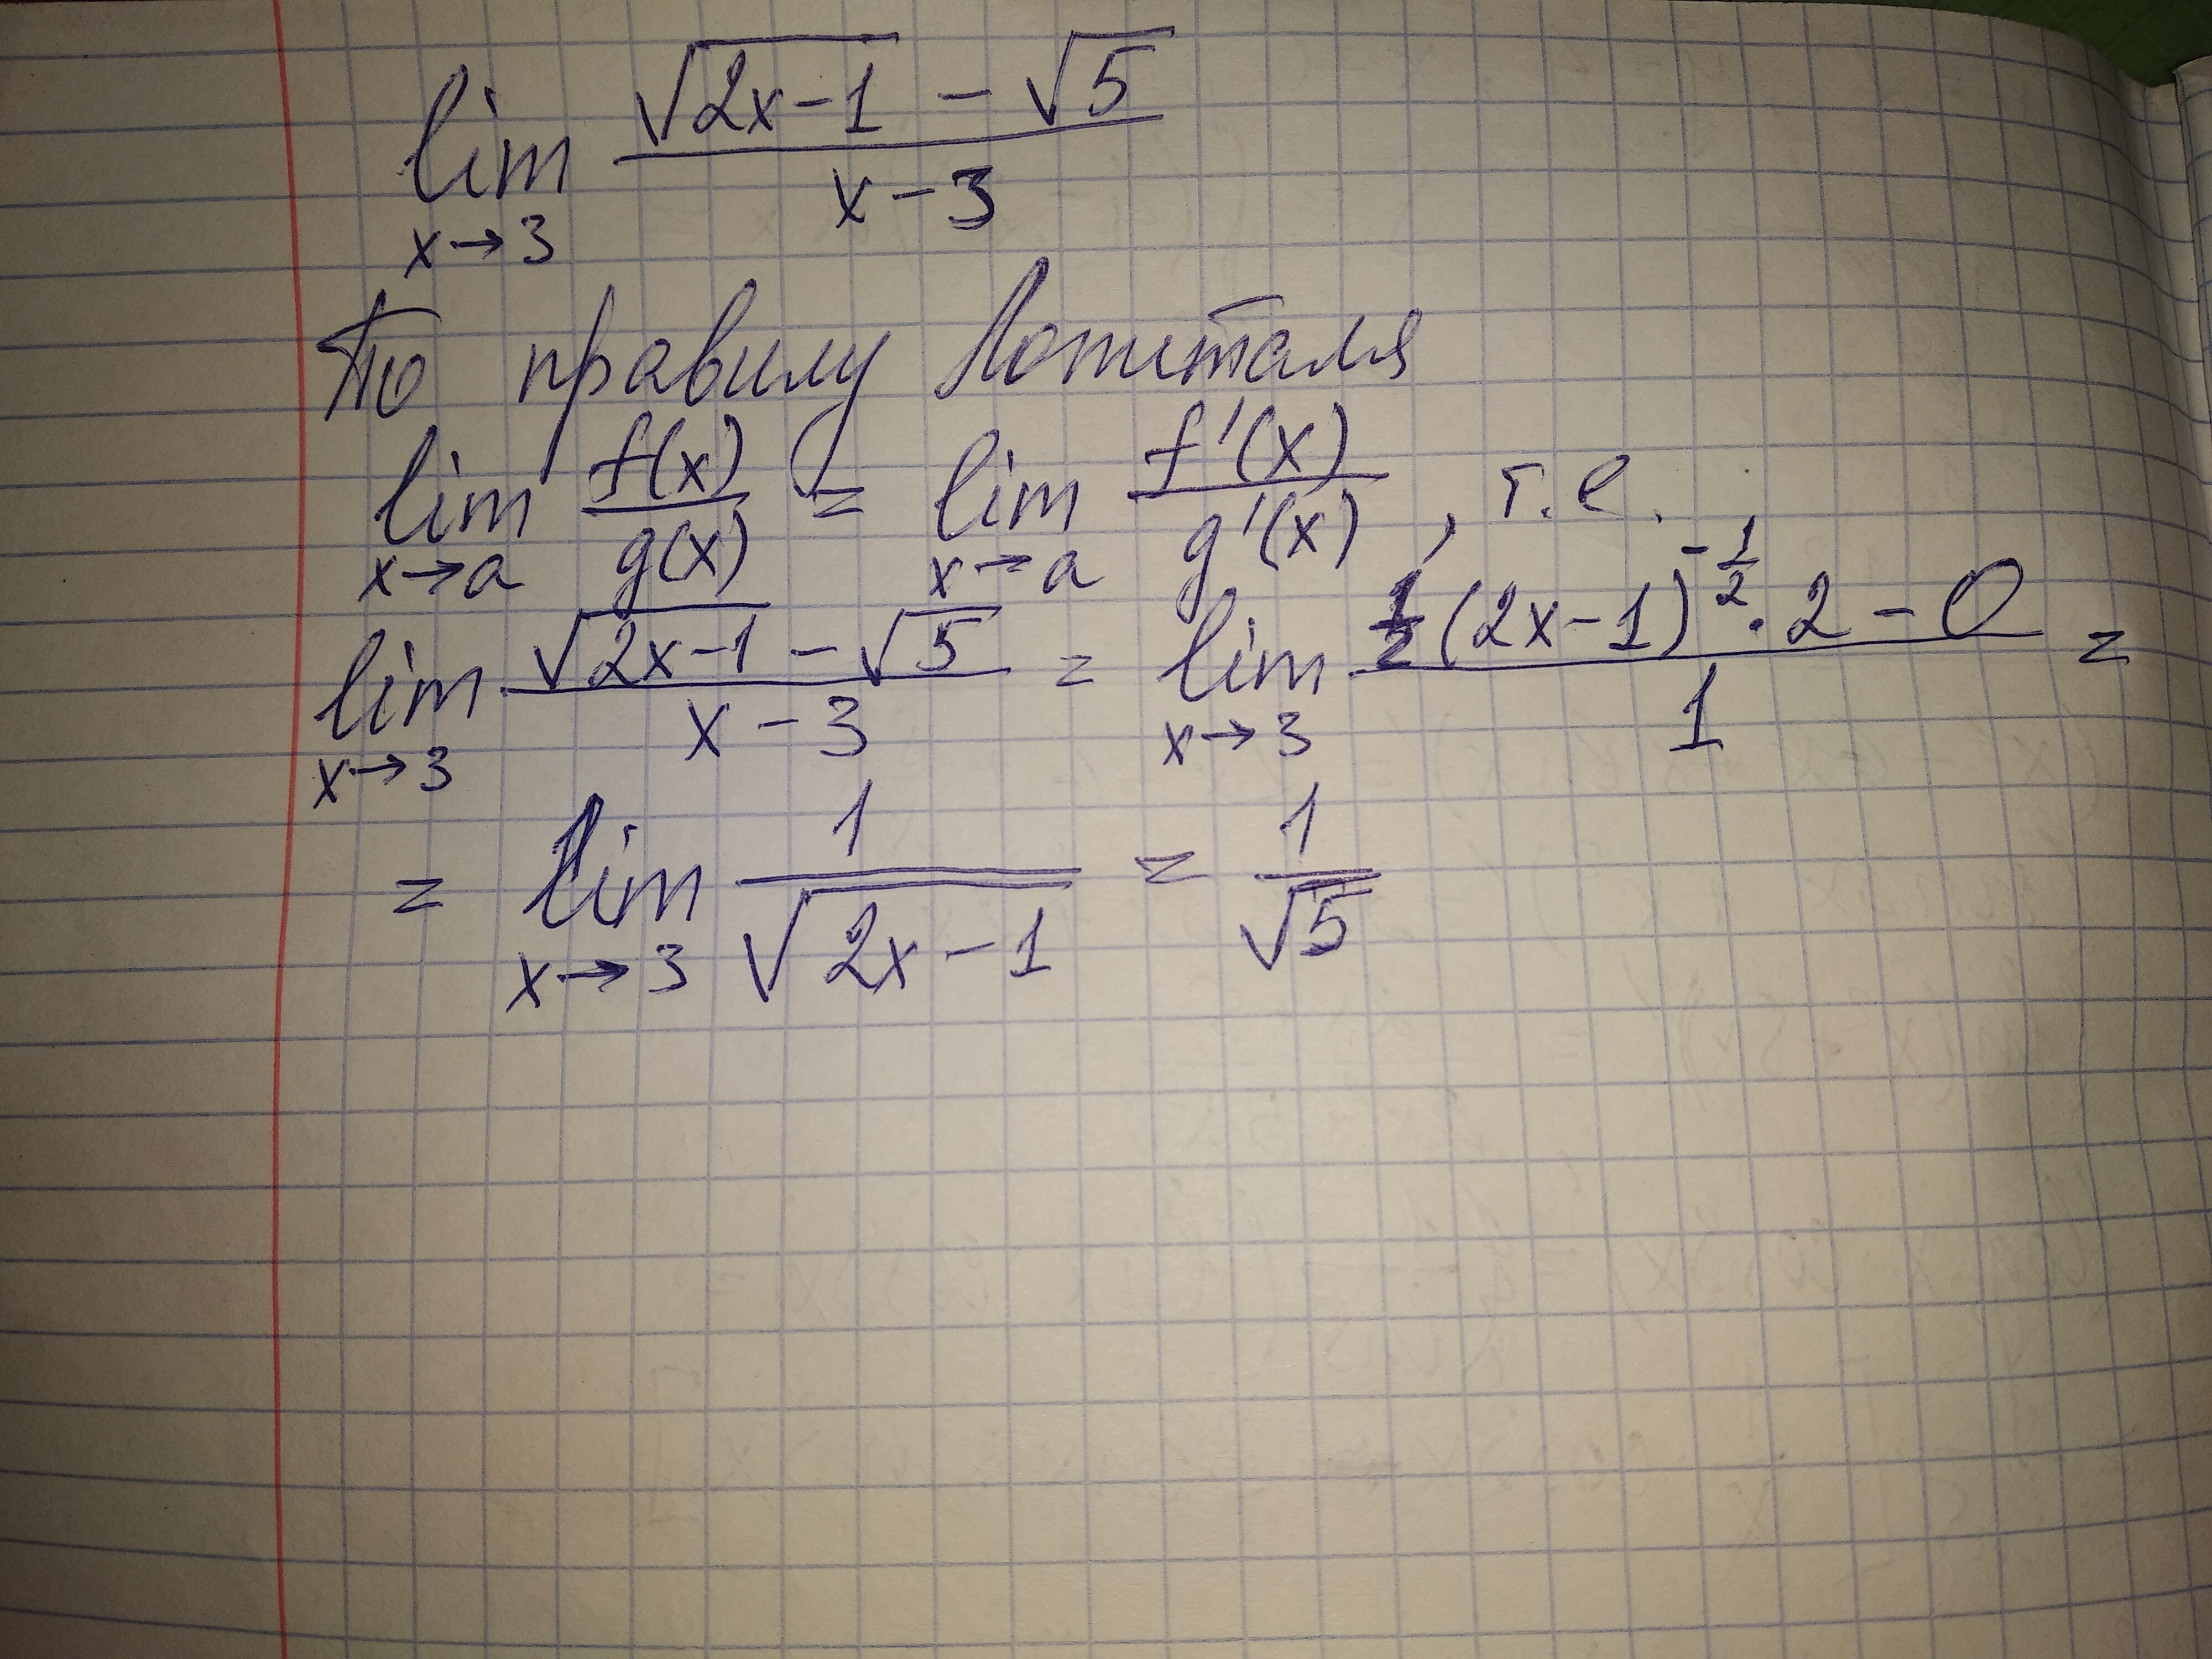 lim x→3 (√(2x-1) - √5)/(x-3)
По правилу Лопиталя
lim x→a f(x)/g(x) = lim x→a f'(x)/g'(x), т.е.
lim x→3 (√(2x-1) - √5)/(x-3) = lim x→3 (1/2 (2x-1)^(-1/2) · 2 - 0)/1 =
= lim x→3 1/√(2x-1) = 1/√5